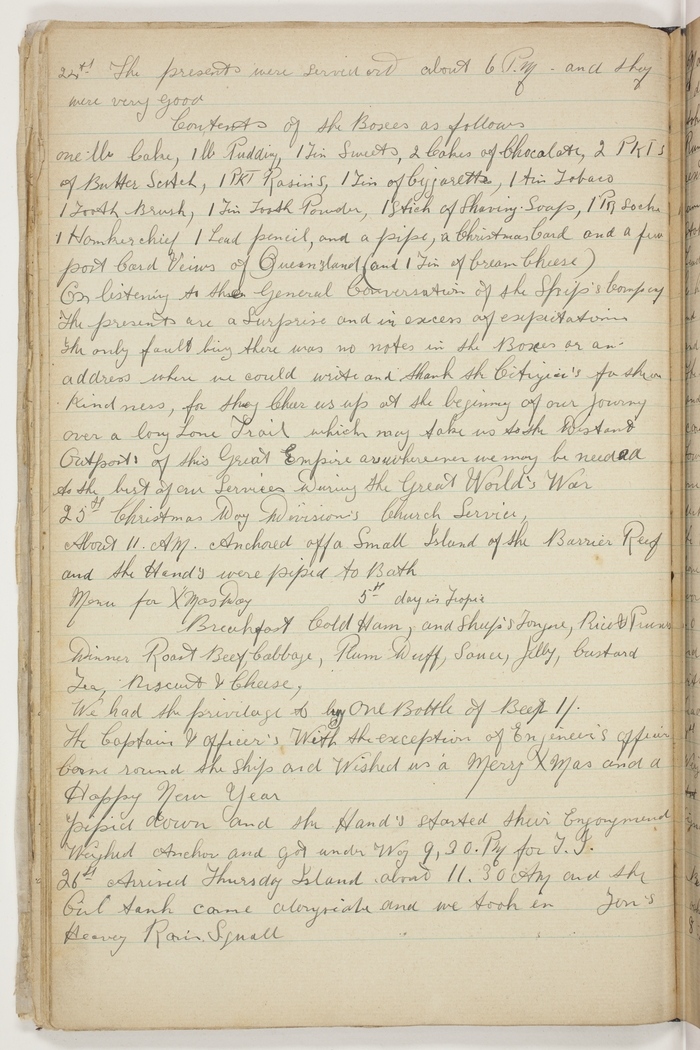 24th The presents were served out about 6 P.M. and they
were very good
Contents of the Boxes as follows
one lb Cake, 1 lb Pudding, 1 Tin Sweets, 2 Cakes of Chocolate, 2 PKTs
of Butter Scotch, 1 PKT Rasins, 1 Tin of Ciggaretts, 1 tin Tobaco
1 Tooth Brush, 1 Tin Tooth Powder, 1 Stick of Shaving Soap, 1 Pr Socks
1 Hankerchief 1 Lead pencil, and a pipe, a Christmas Card and a few
post Card Views of Queensland (and 1 Tin of Cream Cheese)
On listening to the General Conversation of the Ship's Company
The presents are a Surprise and in excess of expectations
the only fault bing there was no notes in the Boxes or an
address where we could write and thank the Citizien's for their
Kindness, for they Chear us up at the beginning of our Journey
over a long Lone Trail which may take us to the Distand
Outposts of this Great Empire or wherever we may be needed
to the best of our Services During the Great World's War
25th Christmas Day Division's Church Service,
About 11. AM. Anchored off a Small Island of the Barrier Reef
and the Hand's were piped to Bath
Menu for XMas Day 5th day in Tropic
Breakfast Cold Ham, and Sheep's Tongue, Rice & Prunes
Dinner Roast Beef Cabbage, Plum Duff, Sauce, Jelly, Custard
Tea, Biscuit & Cheese,
We had the privilage to buy One Bottle of Beer 1/.
The Captain & Officer's With the exception of Engineer's officer
Came round the Ship and Wished us a Merry XMas and a
Happy New Year
piped down and the Hand's started their Enjoyment
Weighed Anchor and got under Way 9,30. PM for T.I.
26th Arrived Thursday Island about 11.30 AM and the
Coal tank came alongside and we took in Ton's
Heavy Rain Squall